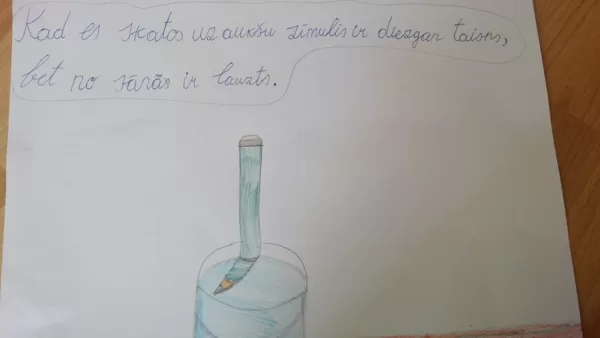 Kad es skatos uz aukšu zīmulis ir diezgan taisns,
bet no sānās ir lauzts.